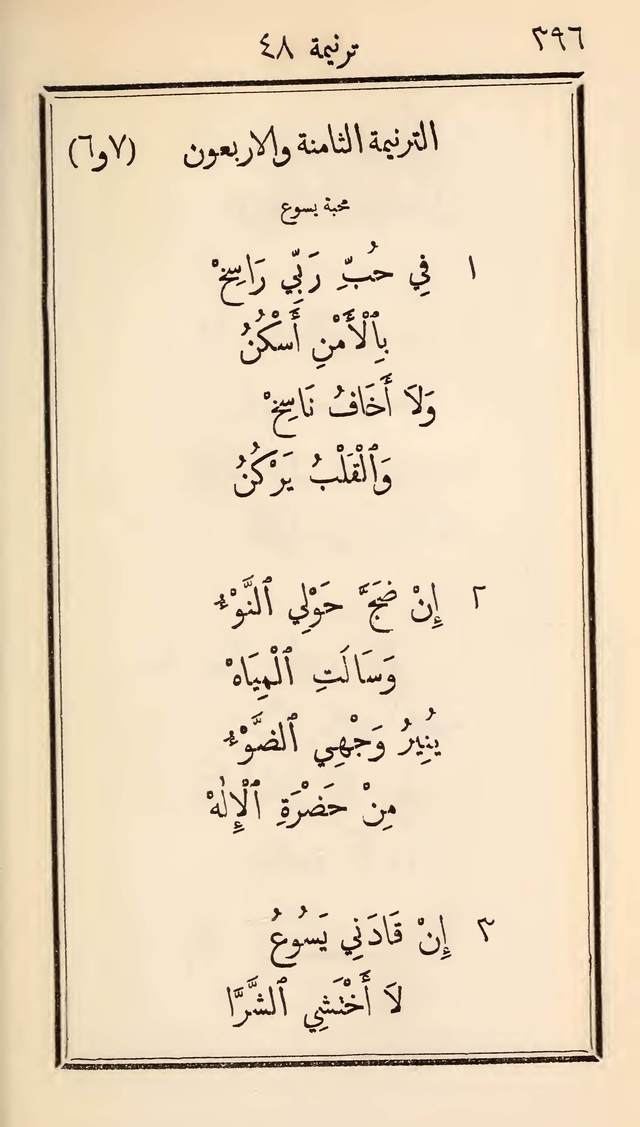 ٣٩٦
ترنيمة ٤٨
الترنيمة الثامنة والاربعون (٧و٦)
محبة يسوع
١ فِي حُبِّ رَبِّي رَاسِخْ
بِٱلْأَمْنِ أَسْكُنُ
وَلَا أَخَافُ نَاسِخْ
وَٱلْقَلْبُ يَرْكُنُ
٢ إِنْ ضَجَّ حَوْلِي ٱلنَّوْءُ
وَسَالَتِ ٱلْمِيَاهْ
يُنِيرُ وَجْهِي ٱلضَّوْءُ
مِنْ حَضْرَةِ ٱلْإِلٰهْ
٣ إِنْ قَادَنِي يَسُوعُ
لَا أَخْتَشِي ٱلشَّرَّا